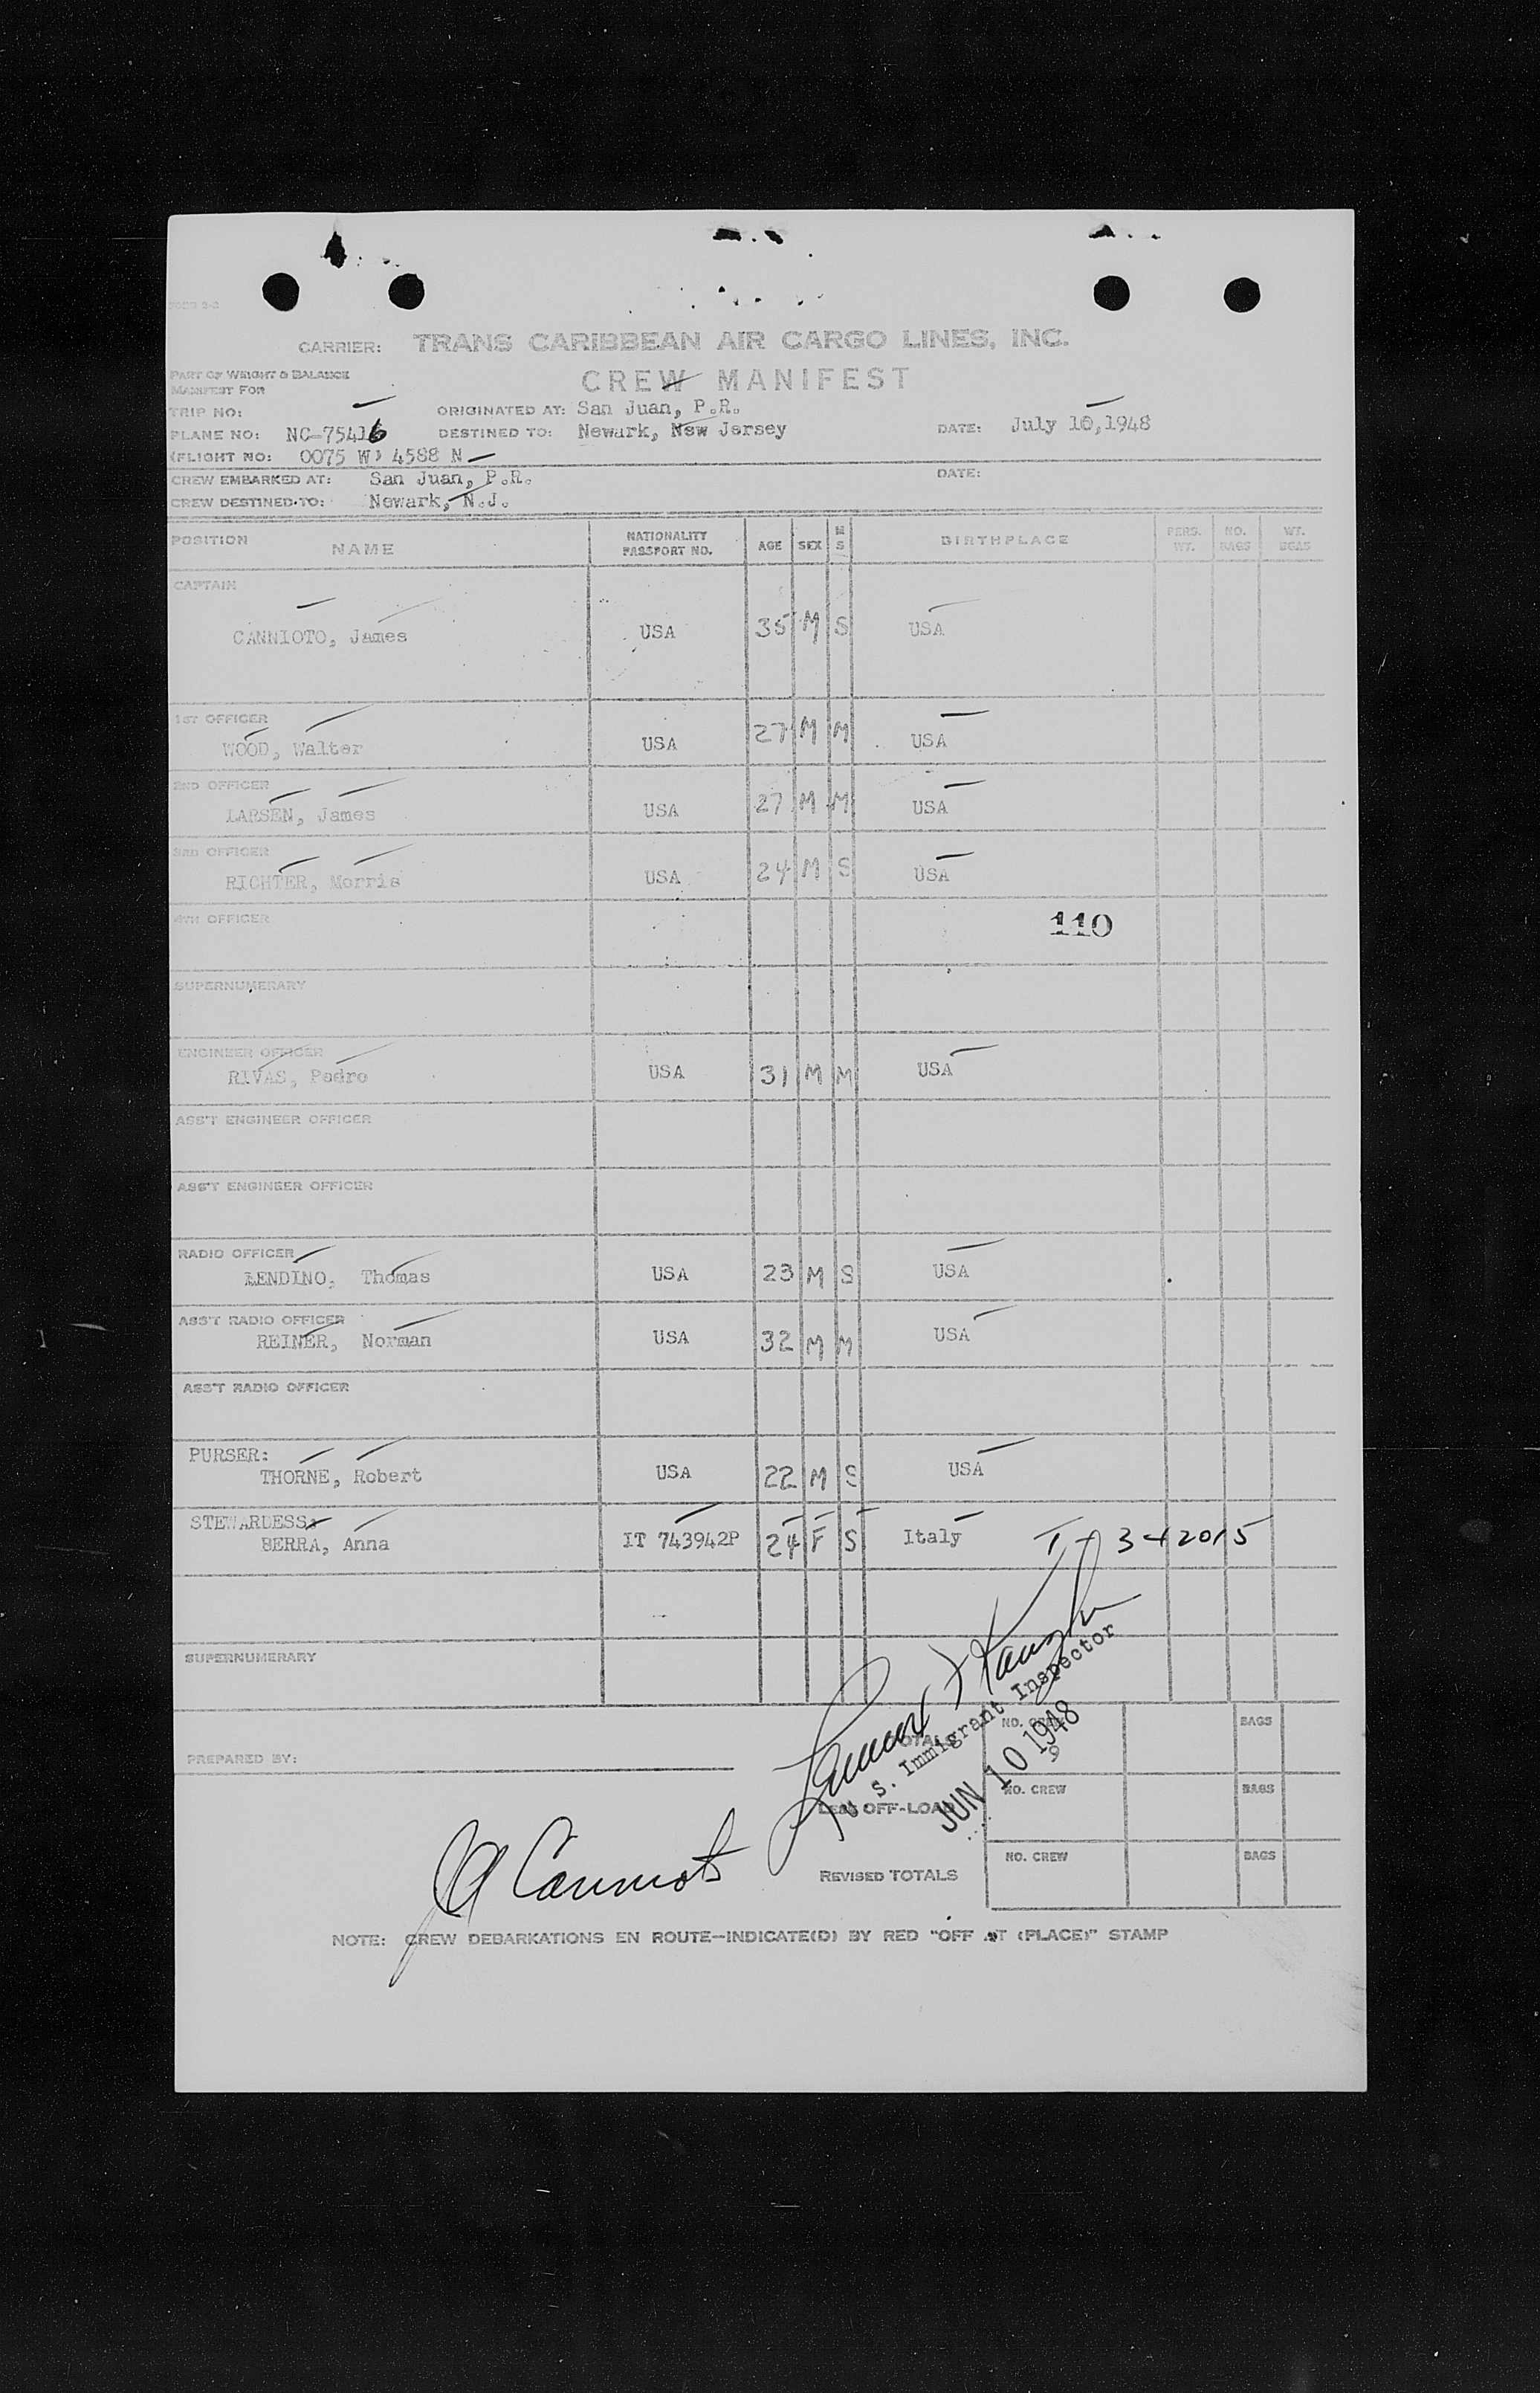 FORM 3-2
CARRIER: TRANS CARIBBEAN AIR CARGO LINES, INC.
PART OF WEIGHT & BALANCE
MANIFEST FOR
CREW MANIFEST
TRIP NO:
ORIGINATED AT: San Juan, P.R.
PLANE NO: NC-75416
DESTINED TO: Newark, New Jersey
DATE: July 10, 1948
(FLIGHT NO: 0075 W) 4588 N
CREW EMBARKED AT: San Juan, P.R.
DATE:
CREW DESTINED TO: Newark, N.J.
POSITION NAME NATIONALITY PASSPORT NO. AGE SEX M S BIRTHPLACE PERS. WT. NO. BAGS WT. BGAS
CAPTAIN
CANNIOTO, James USA 35 M S USA
1ST OFFICER
WOOD, Walter USA 27 M M USA
2ND OFFICER
LARSEN, James USA 27 M M USA
3RD OFFICER
RICHTER, Morris USA 24 M S USA
4TH OFFICER
110
SUPERNUMERARY
ENGINEER OFFICER
RIVAS, Pedro USA 31 M M USA
ASS'T ENGINEER OFFICER
ASS'T ENGINEER OFFICER
RADIO OFFICER
LENDINO, Thomas USA 23 M S USA
ASS'T RADIO OFFICER
REINER, Norman USA 32 M M USA
ASS'T RADIO OFFICER
PURSER:
THORNE, Robert USA 22 M S USA
STEWARDESS:
BERRA, Anna IT 743942P 24 F S Italy
SUPERNUMERARY
U. S. Immigrant Inspector
JUN 10 1948
TOTALS NO. CREW 9 BAGS
PREPARED BY:
LESS OFF-LOAD NO. CREW BAGS
REVISED TOTALS NO. CREW BAGS
NOTE: CREW DEBARKATIONS EN ROUTE—INDICATE(D) BY RED "OFF AT (PLACE)" STAMP